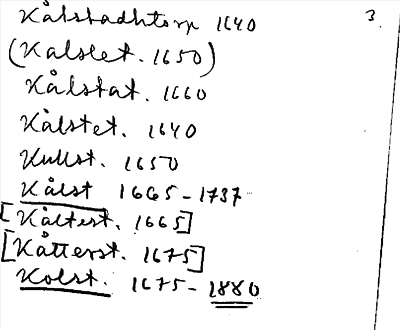 Kålstadhtorp 1640 3.
(Kalslet. 1650)
Kålstat. 1660
Kålstet. 1640
Kullst. 1650
Kålst 1665-1737
[Kåltest. 1665]
[Kåtterst. 1675]
Kolst. 1675-1880